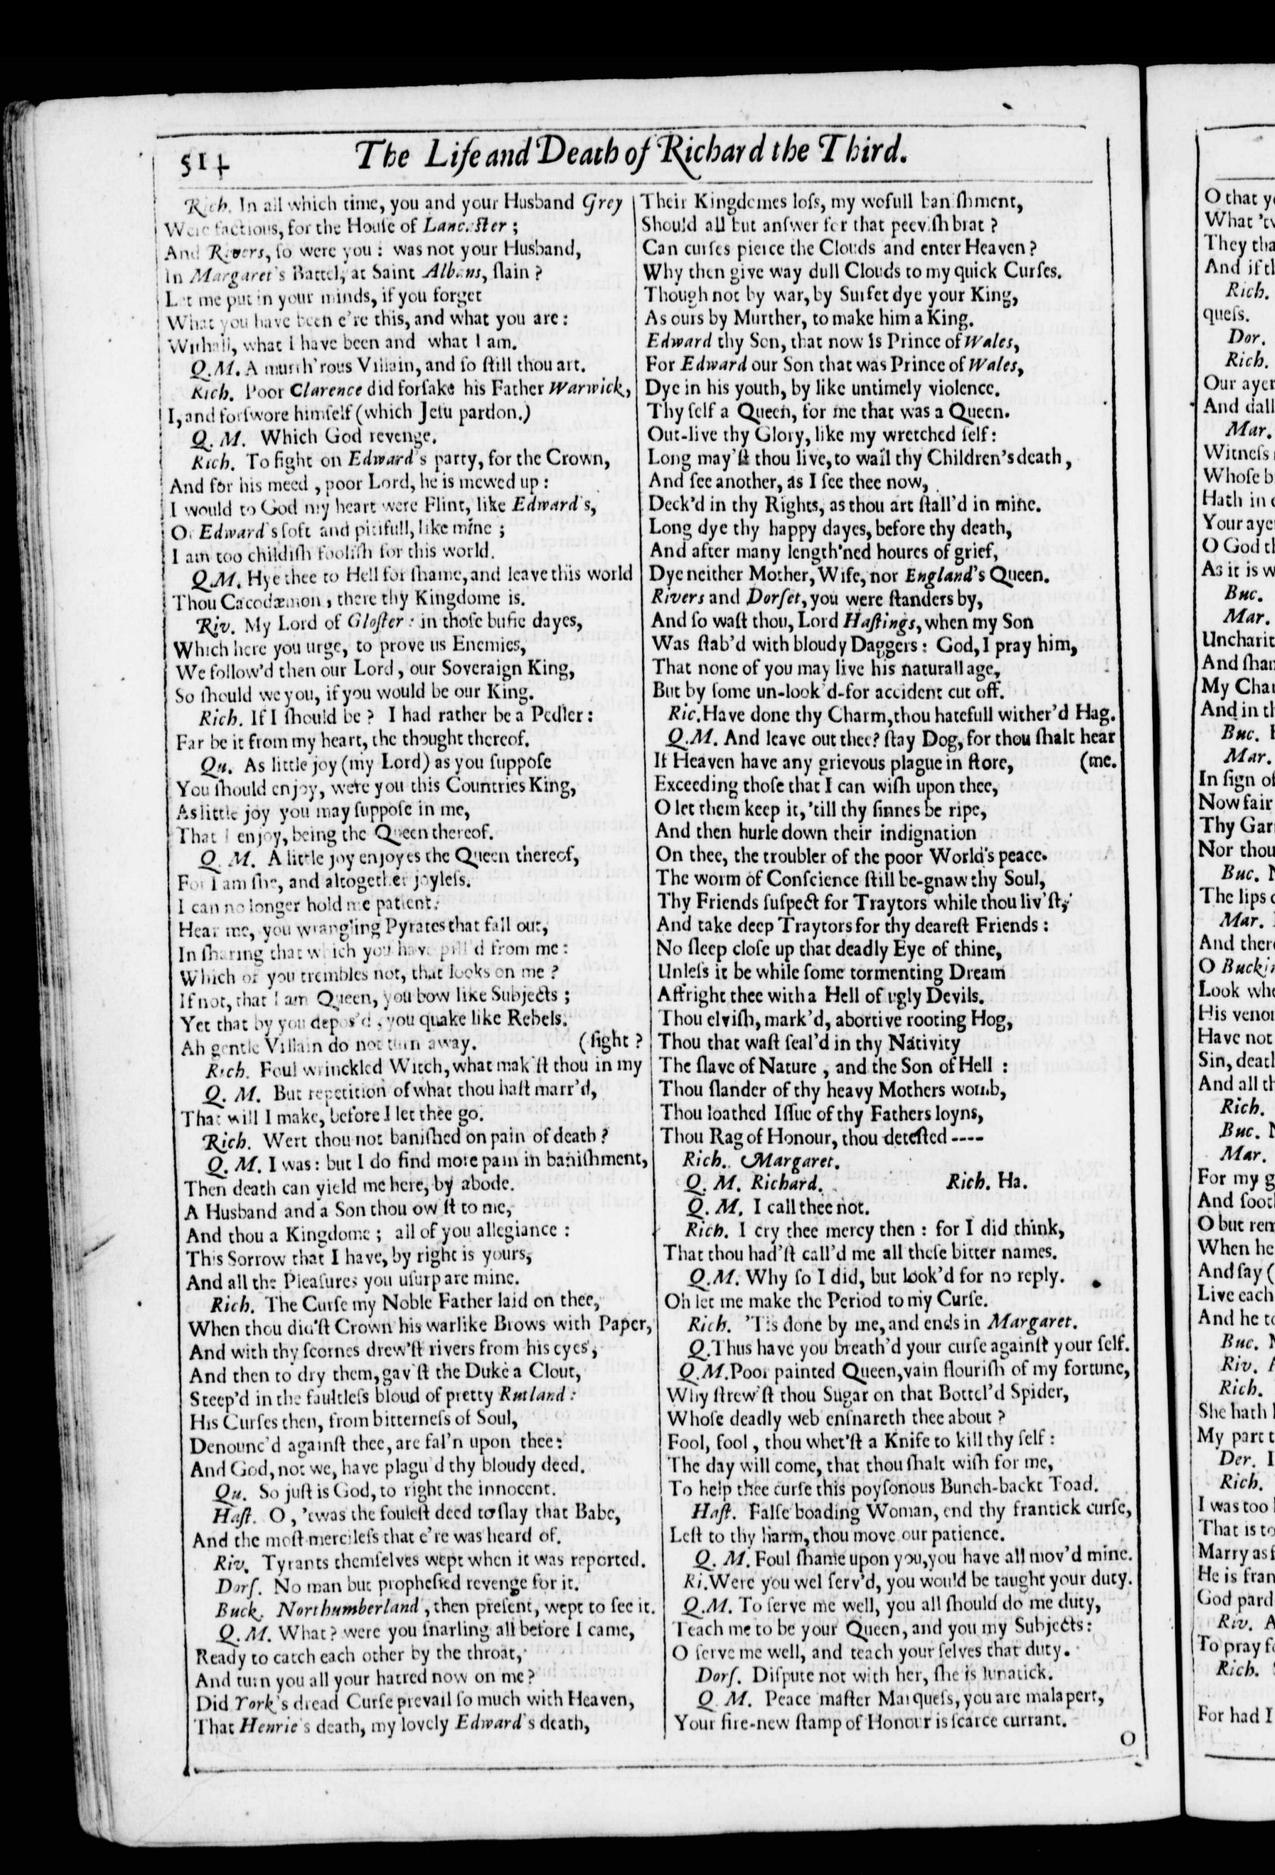 514
The Life and Death of Richard the Third.
Rich. In all which time, you and your Husband Grey
Were factious, for the House of Lancaster;
And Rivers, ſo were you: was not your Husband,
In Margaret's Battel, at Saint Albans, ſlain?
Let me put in your minds, if you forget
What you have been e're this, and what you are:
Withall, what I have been and what I am.
Q.M. A murth'rous Villain, and ſo ſtill thou art.
Rich. Poor Clarence did forſake his Father Warwick,
I, and forſwore himſelf (which Jeſu pardon.)
Q. M. Which God revenge.
Rich. To fight on Edward's party, for the Crown,
And for his meed, poor Lord, he is mewed up:
I would to God my heart were Flint, like Edward's,
Or Edward's ſoft and pitifull, like mine;
I am too childiſh fooliſh for this world.
Q.M. Hye thee to Hell for ſhame, and leave this world
Thou Cacodæmon, there thy Kingdome is.
Riv. My Lord of Gloſter: in thoſe buſie dayes,
Which here you urge, to prove us Enemies,
We follow'd then our Lord, our Soveraign King,
So ſhould we you, if you would be our King.
Rich. If I ſhould be? I had rather be a Pedler:
Far be it from my heart, the thought thereof.
Qu. As little joy (my Lord) as you ſuppoſe
You ſhould enjoy, were you this Countries King,
As little joy you may ſuppoſe in me,
That I enjoy, being the Queen thereof.
Q. M. A little joy enjoyes the Queen thereof,
For I am ſhe, and altogether joyleſs.
I can no longer hold me patient.
Hear me, you wrangling Pyrates that fall out,
In ſharing that which you have pill'd from me:
Which of you trembles not, that looks on me?
If not, that I am Queen, you bow like Subjects;
Yet that by you depos'd, you quake like Rebels.
Ah gentle Villain do not turn away. (ſight?
Rich. Foul wrinckled Witch, what mak'ſt thou in my
Q. M. But repetition of what thou haſt marr'd,
That will I make, before I let thee go.
Rich. Wert thou not baniſhed on pain of death?
Q. M. I was: but I do find more pain in baniſhment,
Then death can yield me here, by abode.
A Husband and a Son thou ow'ſt to me,
And thou a Kingdome; all of you allegiance:
This Sorrow that I have, by right is yours,
And all the Pleaſures you uſurp are mine.
Rich. The Curſe my Noble Father laid on thee,
When thou did'ſt Crown his warlike Brows with Paper,
And with thy ſcornes drew'ſt rivers from his eyes,
And then to dry them, gav'ſt the Duke a Clout,
Steep'd in the faultleſs bloud of pretty Rutland:
His Curſes then, from bitterneſs of Soul,
Denounc'd againſt thee, are fal'n upon thee:
And God, not we, have plagu'd thy bloudy deed.
Qu. So juſt is God, to right the innocent.
Haſt. O, 'twas the fouleſt deed to ſlay that Babe,
And the moſt mercileſs that e're was heard of.
Riv. Tyrants themſelves wept when it was reported.
Dorſ. No man but propheſied revenge for it.
Buck. Northumberland, then preſent, wept to ſee it.
Q. M. What? were you ſnarling all before I came,
Ready to catch each other by the throat,
And turn you all your hatred now on me?
Did York's dread Curſe prevail ſo much with Heaven,
That Henrie's death, my lovely Edward's death,
Their Kingdomes loſs, my wofull baniſhment,
Should all but anſwer for that peeviſh brat?
Can curſes pierce the Clouds and enter Heaven?
Why then give way dull Clouds to my quick Curſes.
Though not by war, by Surfet dye your King,
As ours by Murther, to make him a King.
Edward thy Son, that now is Prince of Wales,
For Edward our Son that was Prince of Wales,
Dye in his youth, by like untimely violence.
Thy ſelf a Queen, for me that was a Queen.
Out-live thy Glory, like my wretched ſelf:
Long may'ſt thou live, to wail thy Children's death,
And ſee another, as I ſee thee now,
Deck'd in thy Rights, as thou art ſtall'd in mine.
Long dye thy happy dayes, before thy death,
And after many length'ned houres of grief,
Dye neither Mother, Wife, nor England's Queen.
Rivers and Dorſet, you were ſtanders by,
And ſo waſt thou, Lord Haſtings, when my Son
Was ſtab'd with bloudy Daggers: God, I pray him,
That none of you may live his naturall age,
But by ſome un-look'd-for accident cut off.
Ric. Have done thy Charm, thou hatefull wither'd Hag.
Q.M. And leave out thee? ſtay Dog, for thou ſhalt hear
If Heaven have any grievous plague in ſtore, (me.
Exceeding thoſe that I can wiſh upon thee,
O let them keep it, 'till thy ſinnes be ripe,
And then hurle down their indignation
On thee, the troubler of the poor World's peace.
The worm of Conſcience ſtill be-gnaw thy Soul,
Thy Friends ſuſpect for Traytors while thou liv'ſt,
And take deep Traytors for thy deareſt Friends:
No ſleep cloſe up that deadly Eye of thine,
Unleſs it be while ſome tormenting Dream
Affright thee with a Hell of ugly Devils.
Thou elviſh, mark'd, abortive rooting Hog,
Thou that waſt ſeal'd in thy Nativity
The ſlave of Nature, and the Son of Hell:
Thou ſlander of thy heavy Mothers womb,
Thou loathed Iſſue of thy Fathers loyns,
Thou Rag of Honour, thou deteſted ----
Rich. Margaret.
Q. M. Richard. Rich. Ha.
Q. M. I call thee not.
Rich. I cry thee mercy then: for I did think,
That thou had'ſt call'd me all theſe bitter names.
Q.M. Why ſo I did, but look'd for no reply.
Oh let me make the Period to my Curſe.
Rich. 'Tis done by me, and ends in Margaret.
Q. Thus have you breath'd your curſe againſt your ſelf.
Q.M. Poor painted Queen, vain flouriſh of my fortune,
Why ſtrew'ſt thou Sugar on that Bottel'd Spider,
Whoſe deadly web enſnareth thee about?
Fool, fool, thou whet'ſt a Knife to kill thy ſelf:
The day will come, that thou ſhalt wiſh for me,
To help thee curſe this poyſonous Bunch-backt Toad.
Haſt. Falſe boading Woman, end thy frantick curſe,
Leſt to thy harm, thou move our patience.
Q. M. Foul ſhame upon you, you have all mov'd mine.
Ri. Were you wel ſerv'd, you would be taught your duty.
Q.M. To ſerve me well, you all ſhould do me duty,
Teach me to be your Queen, and you my Subjects:
O ſerve me well, and teach your ſelves that duty.
Dorſ. Diſpute not with her, ſhe is lunatick.
Q M. Peace maſter Marqueſs, you are malapert,
Your fire-new ſtamp of Honour is ſcarce currant.
O
O that
What
They
And if
Rich.
queſs.
Dor.
Rich.
Our
And
Mar.
Witneſs
Whoſe
Hath in
Your
O God
As it is
Buc.
Mar.
And
My
And in
Buc.
Mar.
In ſign
Now fair
Thy
Nor
Buc.
The lips
Mar.
And
O
Look
His
Have not
Sin,
And all
Rich.
Buc.
Mar.
For my
And
O but
When he
And ſay
Live each
And he
Buc.
Riv.
Rich.
She hath
My part
Der. I
Rich.
I was too
That is
Marry as
He is
God
Riv.
To pray
Rich.
For had I